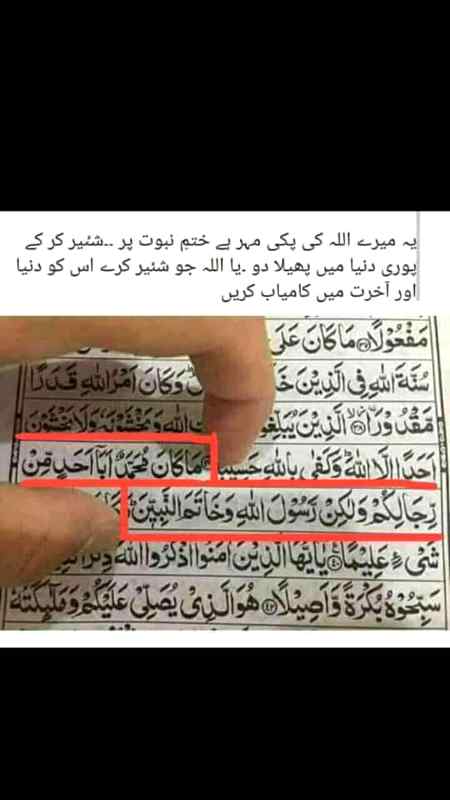 یہ میرے اللہ کی پکی مہر ہے ختمِ نبوت پر ۔۔شئیر کر کے
پوری دنیا میں پھیلا دو ۔یا اللہ جو شئیر کرے اس کو دنیا
اور آخرت میں کامیاب کریں
مَفْعُوْلًا ۳۷ مَا كَانَ عَلَی
سُنَّةَ اللّٰهِ فِی الَّذِیْنَ وَكَانَ اَمْرُ اللّٰهِ قَدَرًا
مَّقْدُوْرًا ۳۸ الَّذِیْنَ اللّٰهِ وَیَخْشَوْنَهٗ وَلَا یَخْشَوْنَ
اَحَدًا اِلَّا اللّٰهَ وَكَفٰی بِاللّٰهِ حَسِیْبًا مَا كَانَ مُحَمَّدٌ اَبَاۤ اَحَدٍ مِّنْ
رِّجَالِكُمْ وَلٰكِنْ رَّسُوْلَ اللّٰهِ وَخَاتَمَ النَّبِیّٖنَ
شَیْءٍ عَلِیْمًا ۴۰ یٰۤاَیُّهَا الَّذِیْنَ اٰمَنُوا اذْكُرُوا اللّٰهَ
سَبِّحُوْهُ بُكْرَةً وَّاَصِیْلًا ۴۲ هُوَ الَّذِیْ یُصَلِّیْ عَلَیْكُمْ وَمَلٰٓئِكَتُهٗ